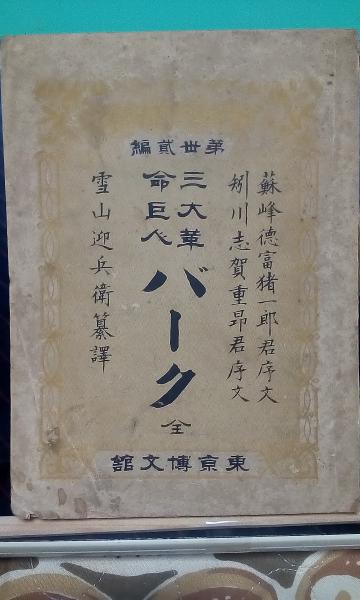 第卅貳編
蘇峰德富猪一郎君序文
矧川志賀重昂君序文
三大革命巨人
バーク
全
雪山迎兵衛纂譯
東京博文館